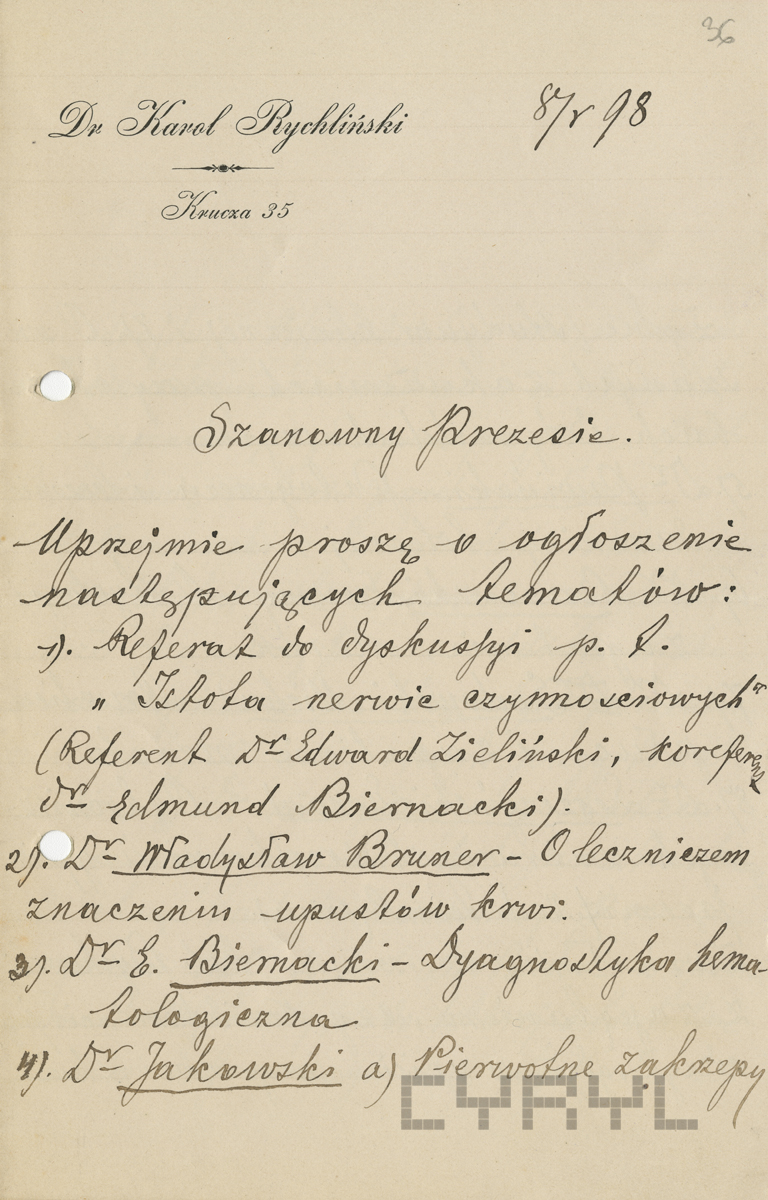 36
Dr Karol Rychliński
8/V 98
Krucza 35
Szanowny Prezesie.
Uprzejmie proszę o ogłoszenie
następujących tematów:
1). Referat do dyskussyi p. t.
„Istota nerwic czynnościowych"
(Referent Dr Edward Zieliński, koreferent
dr Edmund Biernacki).
2). Dr Władysław Bruner – O leczniczem
znaczeniu upustów krwi.
3). Dr E. Biernacki – Dyagnostyka hema-
tologiczna
4). Dr Jakowski a) Pierwotne zakrzepy
CYRYL